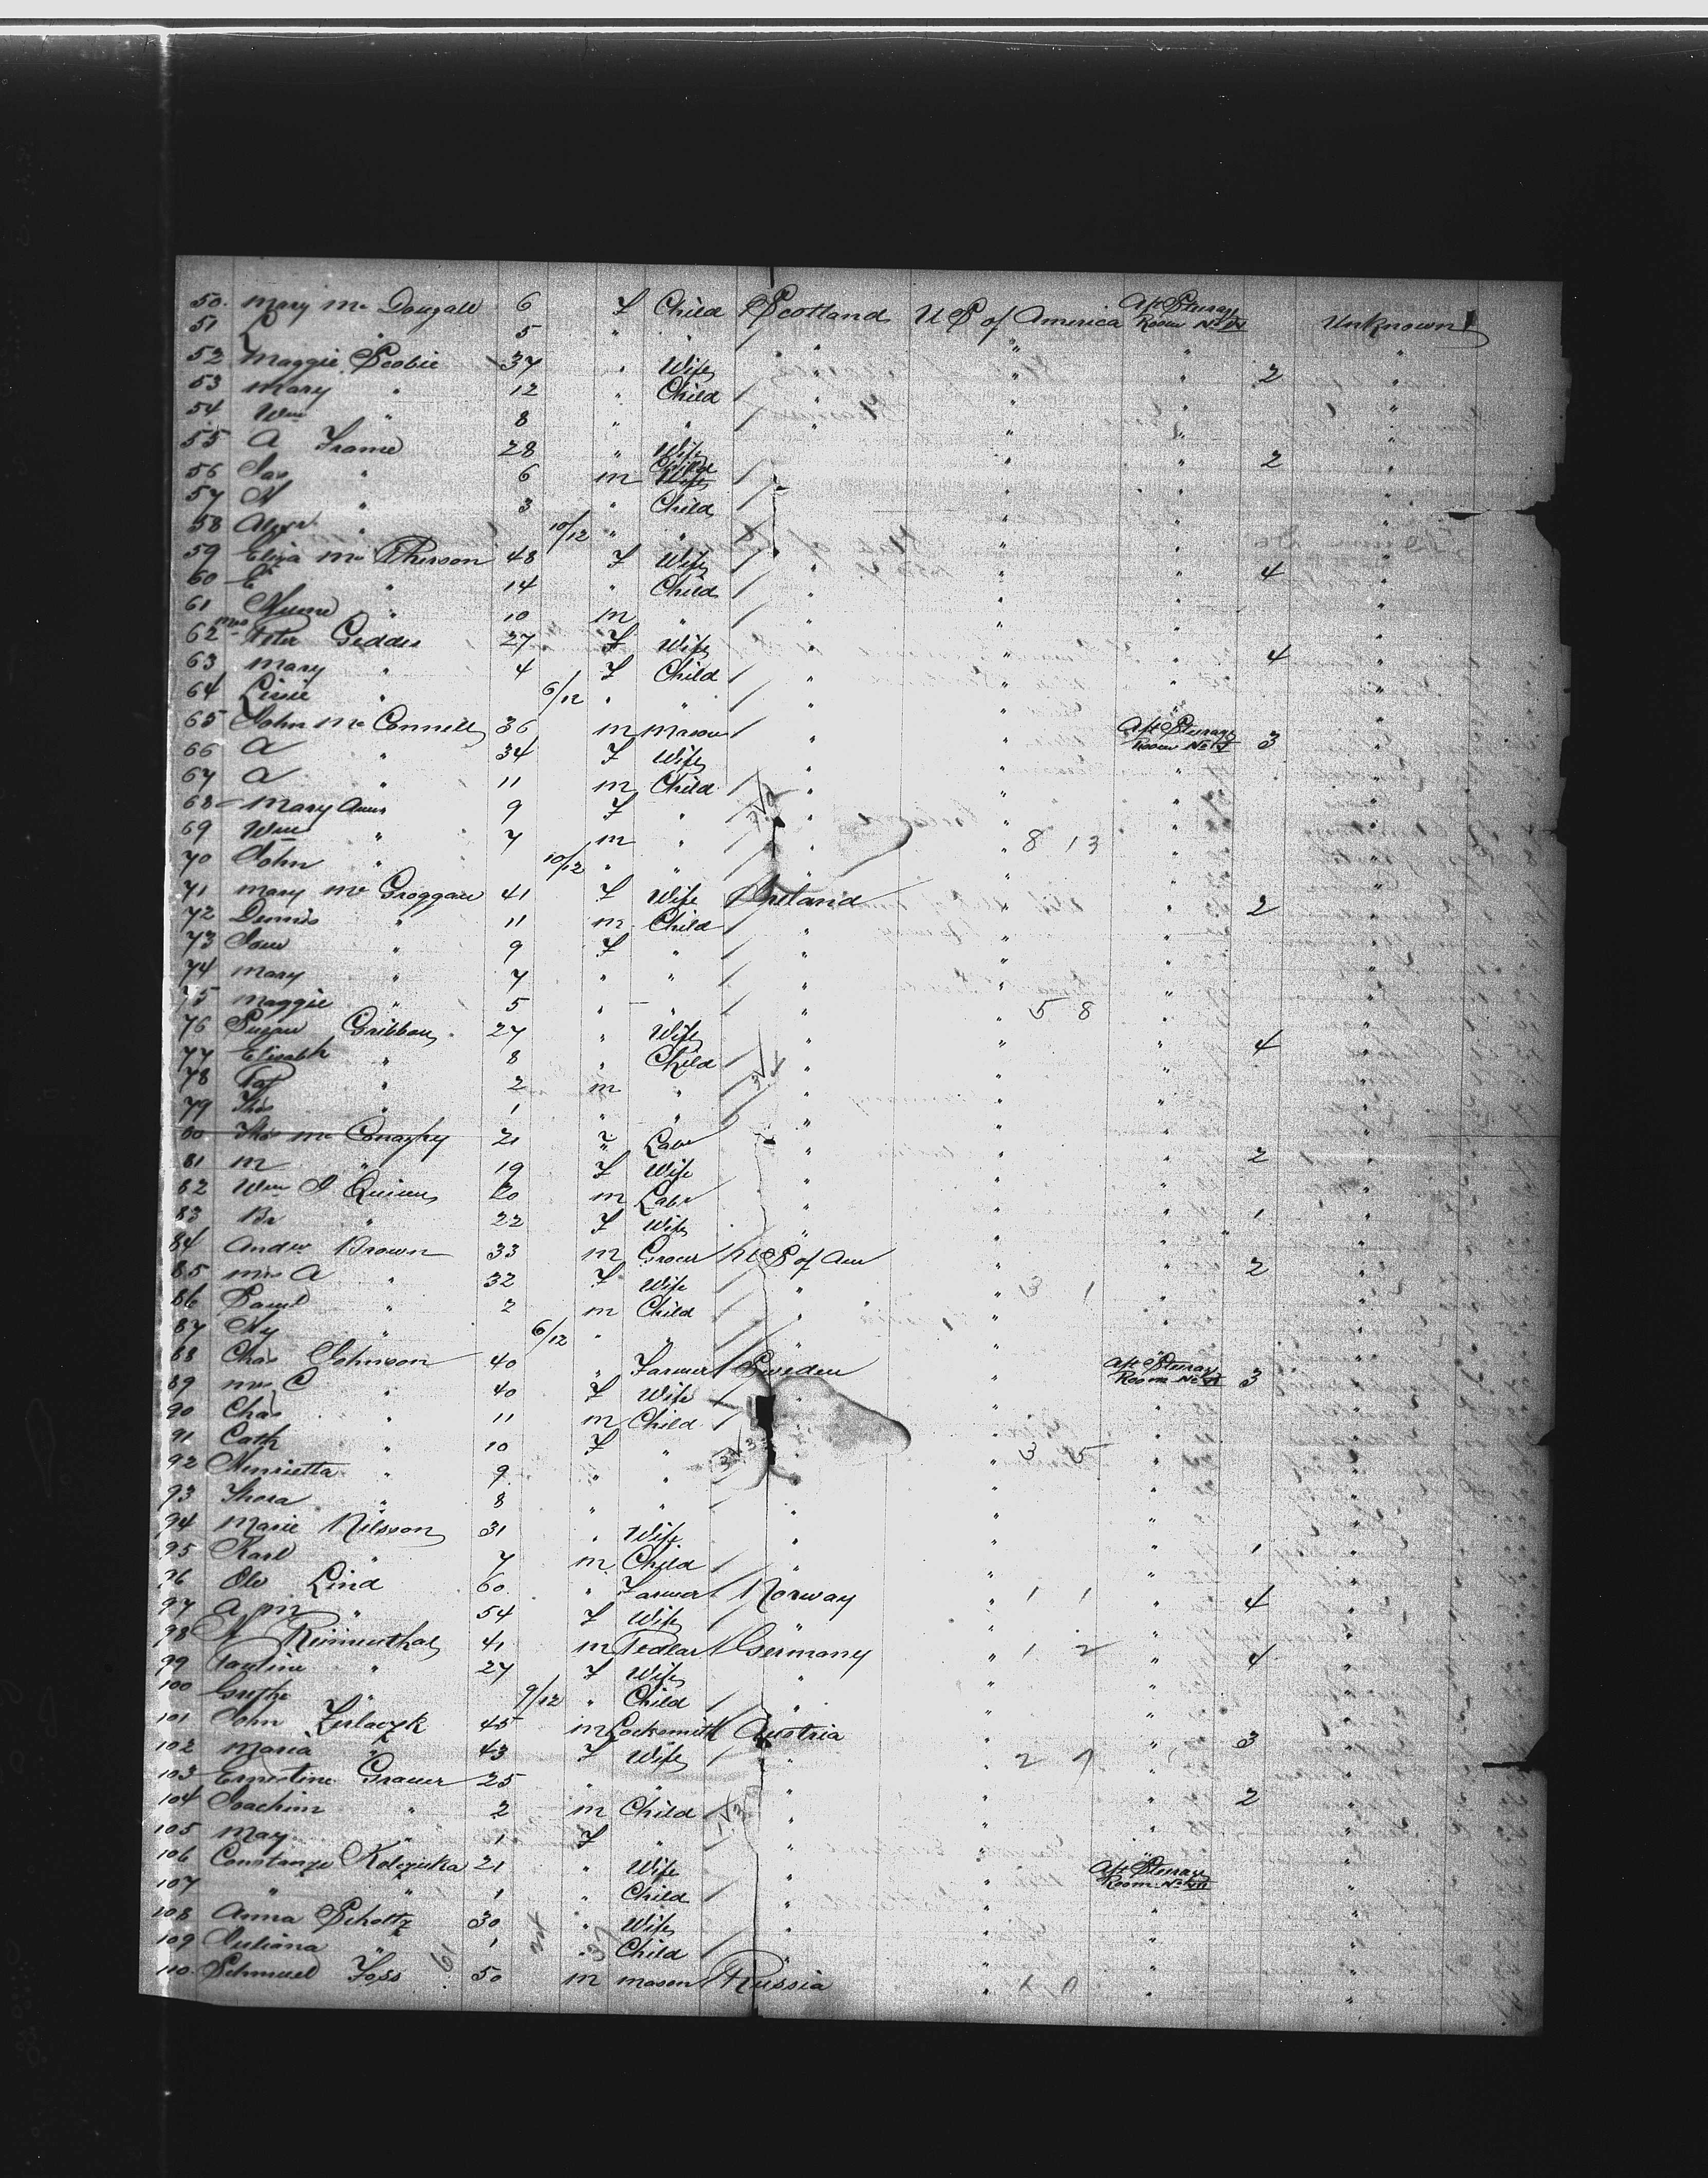 50. Mary Mc Dougall 6 F Child Scotland U S of America Aft Steerage Room No Unknown
51 " 5 " " " " " "
52 Maggie Scobie 37 " Wife " " " 2 "
53 Mary " 12 " Child " " " "
54 Wm " 8 " " " " " "
55 A Frame 28 " Wife " " " 2 "
56 Jas " 6 m Child " " " "
57 " 3 " Child " " " "
58 Alexr " 10/12 " " " " " "
59 Eliza Mc Pherson 48 F Wife " " " 4 "
60 E " 14 " Child " " " "
61 " 10 m " " " " "
62 Mrs Peter Geddes 27 F Wife " " " 4 "
63 Mary " 4 F Child " " " "
64 Lizzie " 6/12 " " " " " "
65 John Mc Connell 36 m Mason " " Aft Steerage Room No 3 "
66 A " 34 F Wife " " " "
67 A " 11 m Child " " " "
68 Mary Ann " 9 F " " " " "
69 Wm " 7 m " " " 8 13 " "
70 John " 10/12 " " " " " "
71 Mary Mc Groggan 41 F Wife Ireland " " 2 "
72 Dennis " 11 m Child " " " "
73 " 9 F " " " " "
74 Mary " 7 " " " " " "
75 Maggie " 5 " " " " 5 8 " "
76 Susan Gribbon 27 " Wife " " " 4 "
77 Elisabth " 8 " Child " " " "
78 Pat " 2 m " " " " "
79 Thos " 1 " " " " " "
80 Thos Mc Conaghy 21 " Labr " " " "
81 M " 19 F Wife " " " 2 "
82 Wm J Quinn 20 m Labr " " " "
83 Br " 22 F Wife " " " 1 "
84 Andw Brown 33 m Grocer U S of Am " " "
85 Mrs A " 32 F Wife " " 3 1 " 2 "
86 Saml " 2 m Child " " " "
87 Hy " 6/12 " " " " " "
88 Chas Johnson 40 " Farmer Sweden " Aft Steerage Room No 3 "
89 Mrs C " 40 F Wife " " " "
90 Chas " 11 m Child " " " "
91 Cath " 10 F " " " 3 5 " "
92 Henrietta " 9 " " " " " "
93 Thora " 8 " " " " " "
94 Marie Nilsson 31 " Wife " " " "
95 Karl " 7 m Child " " " 1 "
96 Ole Lind 60 " Farmer Norway " 1 1 " "
97 A M " 54 F Wife " " " 4 "
98 Rimenthal 41 m Pedlar Germany " 1 2 " "
99 Pauline " 27 F Wife " " " 4 "
100 Grethe " 9/12 " Child " " " "
101 John 45 m Locksmith Austria " " "
102 Maria " 43 F Wife " " 2 7 " 3 "
103 Ernestine Grauer 25 " " " " " "
104 Joachim " 2 m Child " " " 2 "
105 May " 1 F " " " " "
106 Constanze 21 " Wife " " Aft Steerage Room No "
107 " " 1 " Child " " " "
108 Anna Scholtz 30 " Wife " " " "
109 Juliana " 1 " Child " " " "
110. Schmuel Foss 50 m Mason Russia " " "